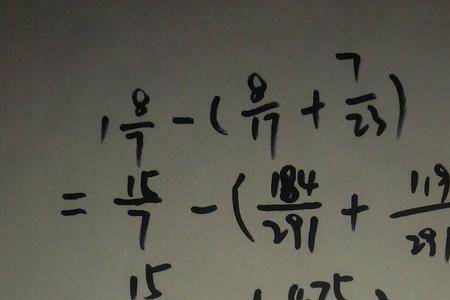 1 8/7 - ( 8/17 + 7/23 )
= 15/7 - ( 184/291 + 119/291
15 ( 475 )